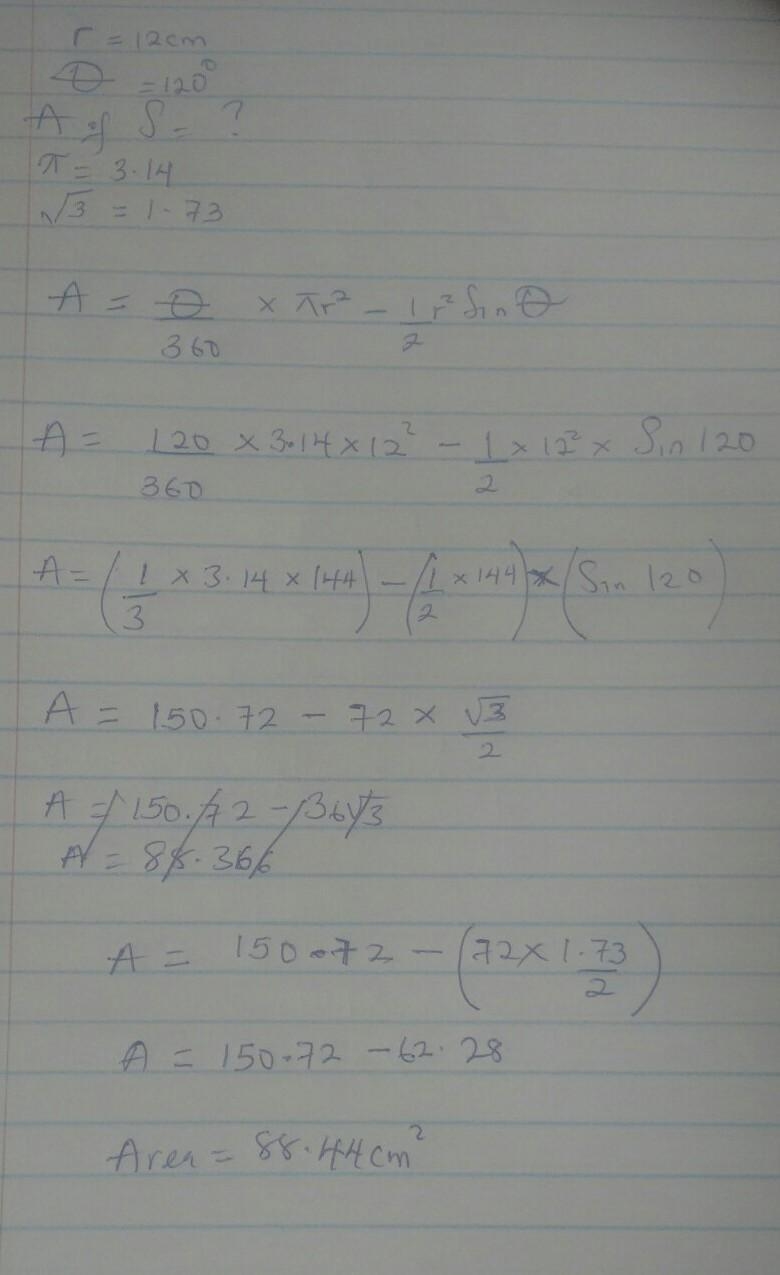 r = 12cm
θ = 120°
A of S = ?
π = 3.14
√3 = 1.73
A = θ/360 × πr² - 1/2 r² Sin θ
A = 120/360 × 3.14 × 12² - 1/2 × 12² × Sin 120
A = (1/3 × 3.14 × 144) - (1/2 × 144) × (Sin 120)
A = 150.72 - 72 × √3/2
A = 150.72 - 36√3
A = 88.366
A = 150.72 - (72 × 1.73/2)
A = 150.72 - 62.28
Area = 88.44cm²